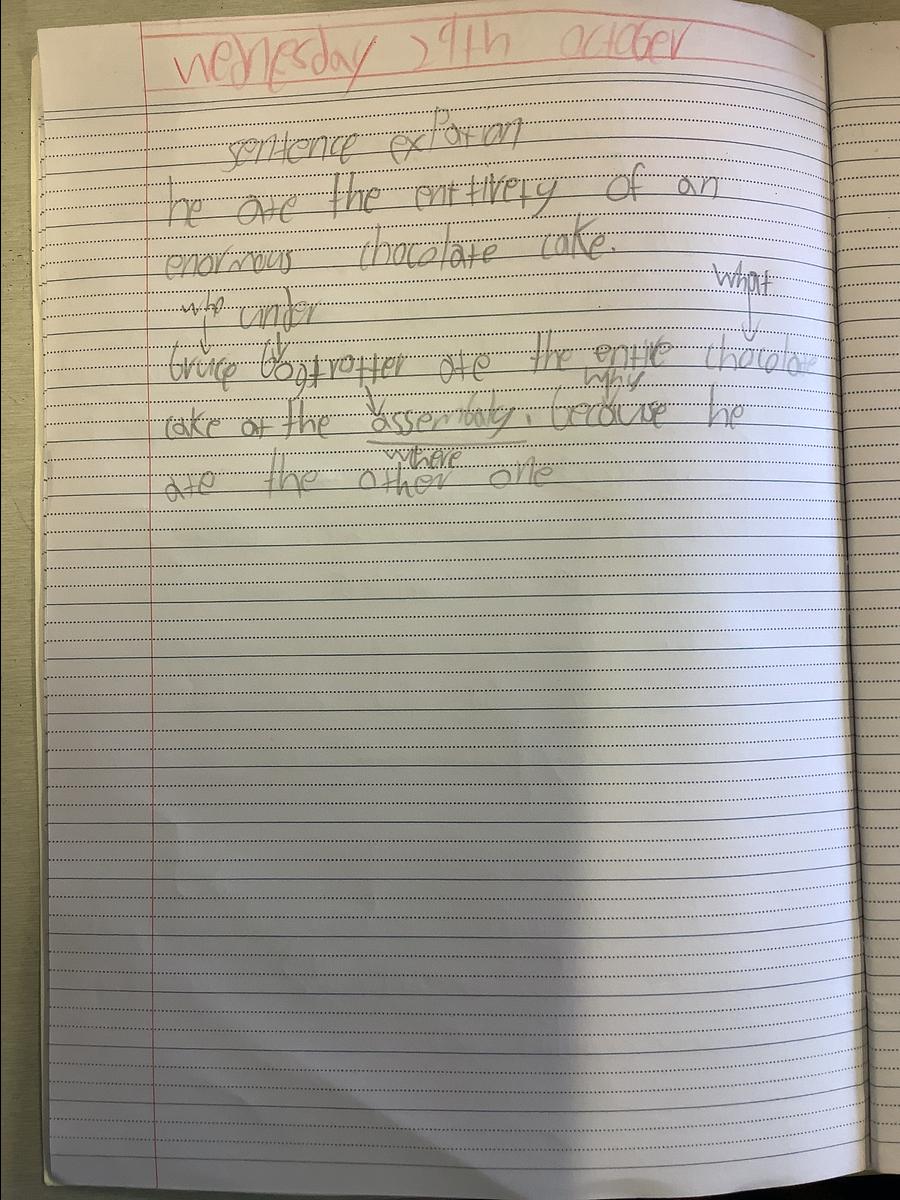 wenesday 29th october
sentence expation
he ate the entirety of an
enormous chocolate cake.
what
who under
bruce bogtrotter ate the entire chocolate
why
cake at the assembaly. because he
where
ate the other one